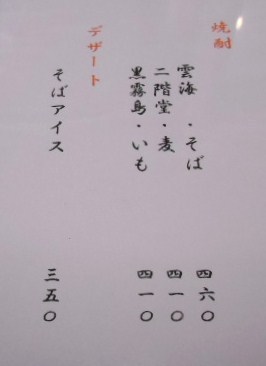 焼酎
雲海・そば 四六〇
二階堂・麦 四一〇
黒霧島・いも 四一〇
デザート
そばアイス 三五〇